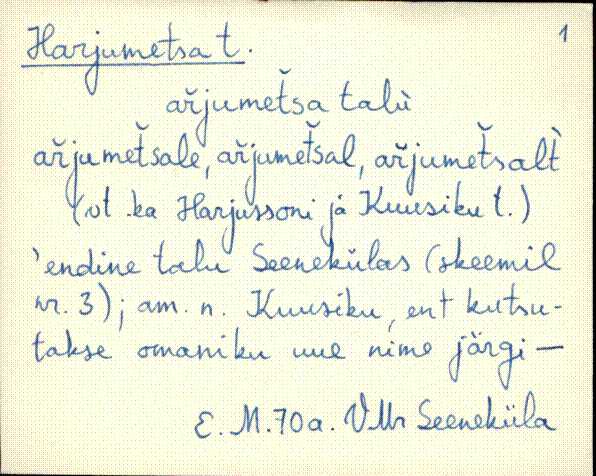 Harjumetsa t. 1
ar̆jumet̆sa talù
ar̆jumet̆sale, ar̆jumet̆sal, ar̆jumet̆salt̀
(vt .ka Harjussoni ja Kuusiku t.)
'endine talu Seenekülas (skeemil
nr. 3); am. n. Kuusiku, ent kutsu-
takse omaniku uue nime järgi —
E. M. 70 a. VMr Seeneküla